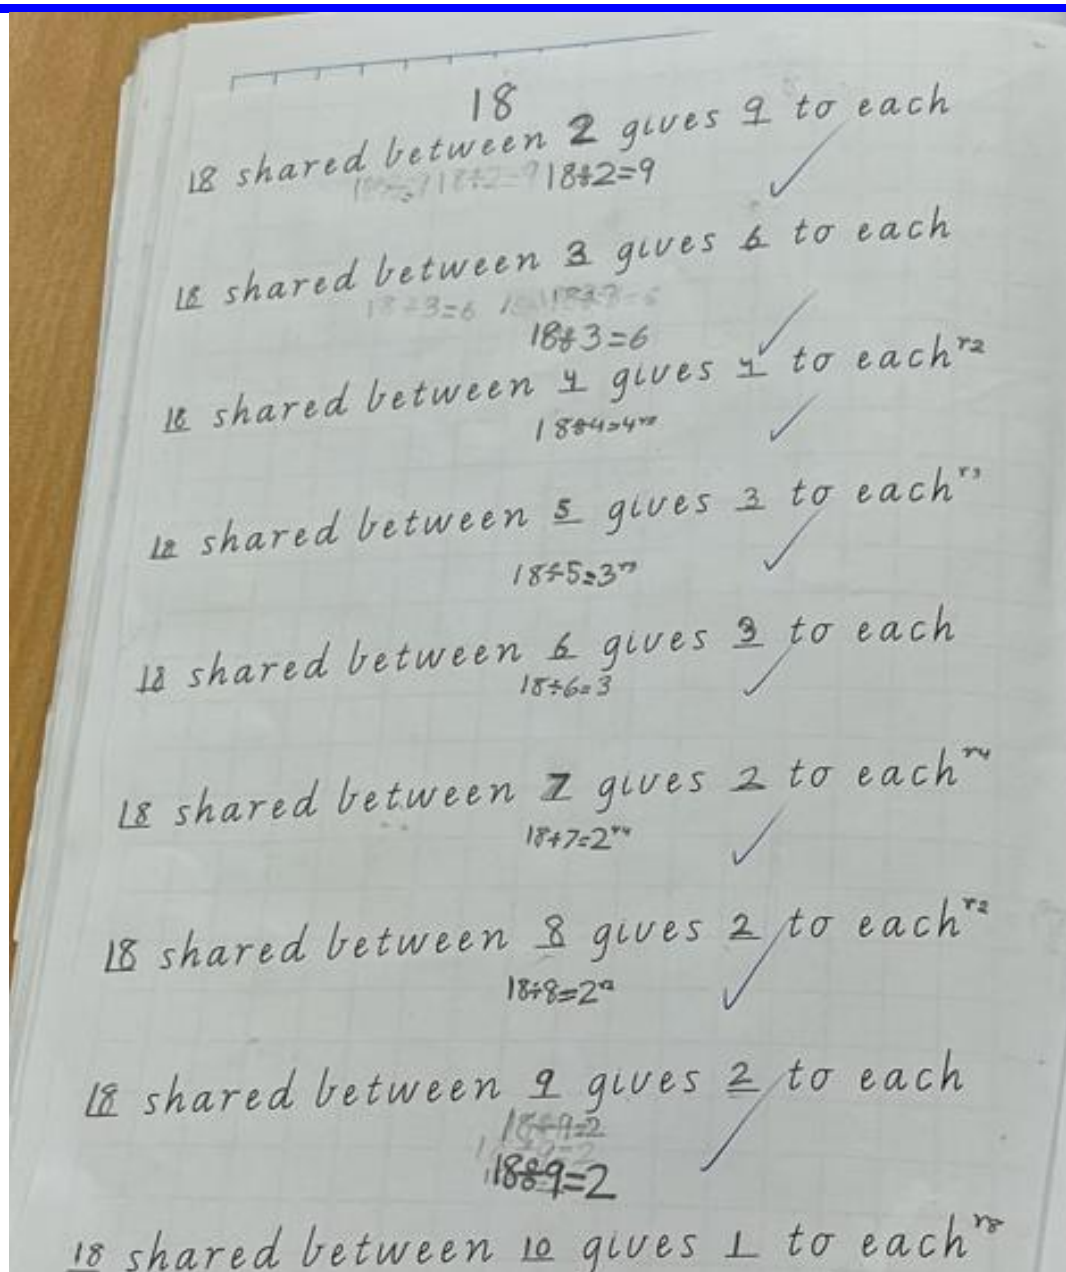 18
18 shared between 2 gives 9 to each
18÷2=9
18 shared between 3 gives 6 to each
18÷3=6
18÷3=6
18 shared between 4 gives 4 to each r2
18÷4=4 r2
18 shared between 5 gives 3 to each r3
18÷5=3 r3
18 shared between 6 gives 3 to each
18÷6=3
18 shared between 7 gives 2 to each r4
18÷7=2 r4
18 shared between 8 gives 2 to each r2
18÷8=2 r2
18 shared between 9 gives 2 to each
18÷9=2
18÷9=2
18 shared between 10 gives 1 to each r8